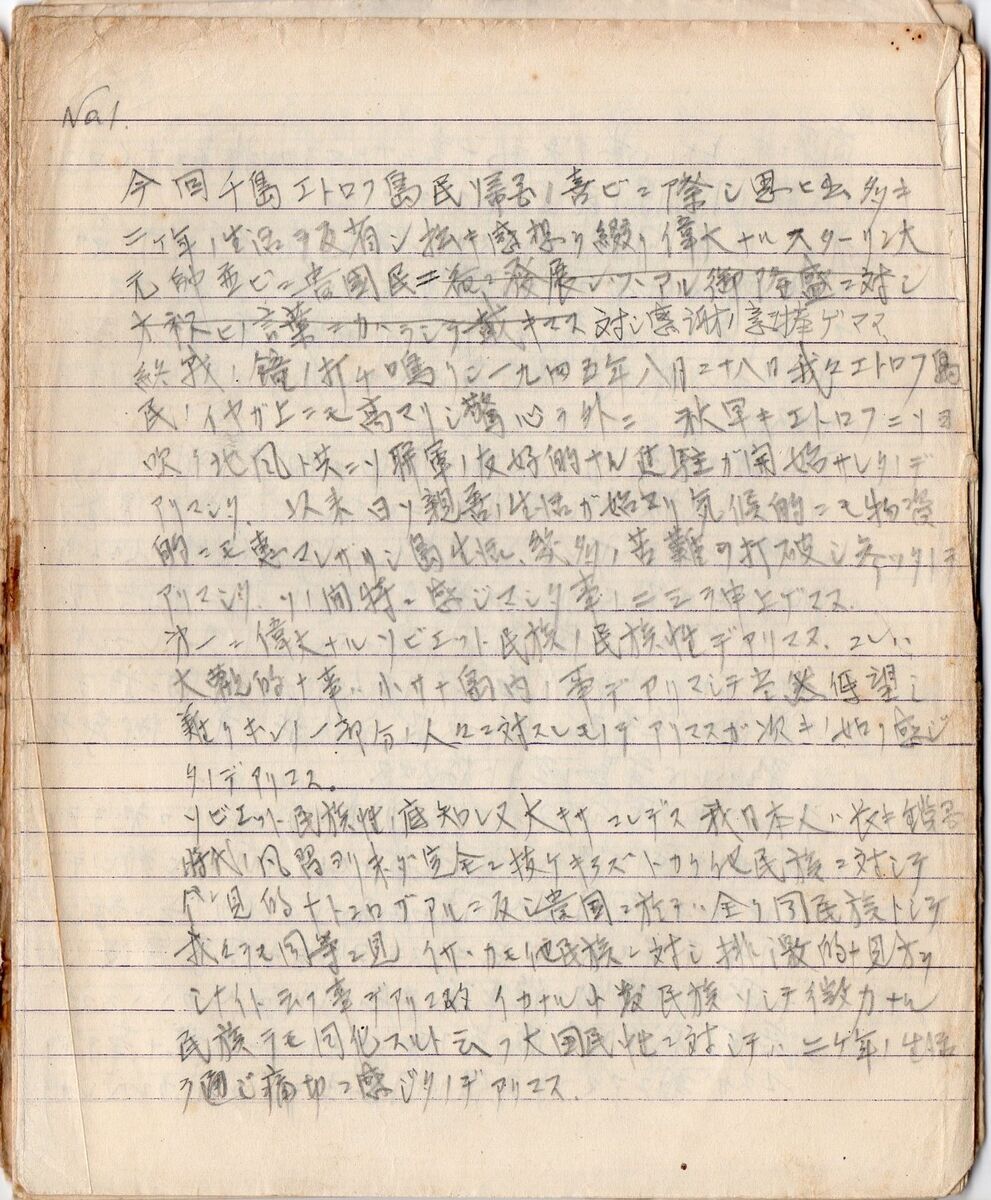 No1.
今回千島エトロフ島民帰還ノ喜ビニ際シ思ヒ出多キ
二ケ年ノ生活ヲ反省シ拙キ感想ヲ綴リ偉大ナルスターリン大
元帥並ビニ貴國民ニ益々發展シツヽアル御隆盛ニ対シ
言葉ニカヘラシテ戴キマス 対シ感謝ノ意ヲ捧ゲマス
終戦ノ鐘ノ打チ鳴リシ一九四五年八月二十八日我々エトロフ島
民ノイヤガ上ニモ高マリシ驚心ヲ外ニ 秋早キエトロフニソヨ
吹ク北風ト共ニソ聯軍ノ友好的ナル進駐ガ開始サレタノデ
アリマシタ 以来日ソ親善ノ生活ガ始マリ気候的ニモ物資
的ニモ恵マレザリシ島生活、幾多ノ苦難ヲ打破シ参ッタノデ
アリマシタ、ソノ間特ニ感ジマシタ事ノ二三ヲ申上ゲマス
オ一ニ偉大ナルソビエット民族ノ民族性デアリマス、コレハ
大乾的ナ事ハ小サナ島内ノ事デアリマシテ当然 望ミ
難クホンノ一部分ノ人々ニ対スルモノデアリマスガ次キノ如ク感ジ
タノデアリマス。
ソビエット民族性ノ底知レヌ大キサコレデス 我日本人ハ長キ鎖國
時代ノ風習ヨリ未ダ完全ニ抜ケキラズトカク他民族ニ対シテ
見的ナトコロガアルニ反シ貴国ニ於テハ全ク同民族トシテ
我々ヲモ同等ニ見 イサヽカモ他民族ニ対シ排 的ナ見方ヲ
シナイト云フ事デアリマス イカナル小数民族ソシテ微力ナル
民族デモ同化スルト云フ大国民性ニ対シテハ二ケ年ノ生活
ヲ通ジ痛切ニ感ジタノデアリマス.